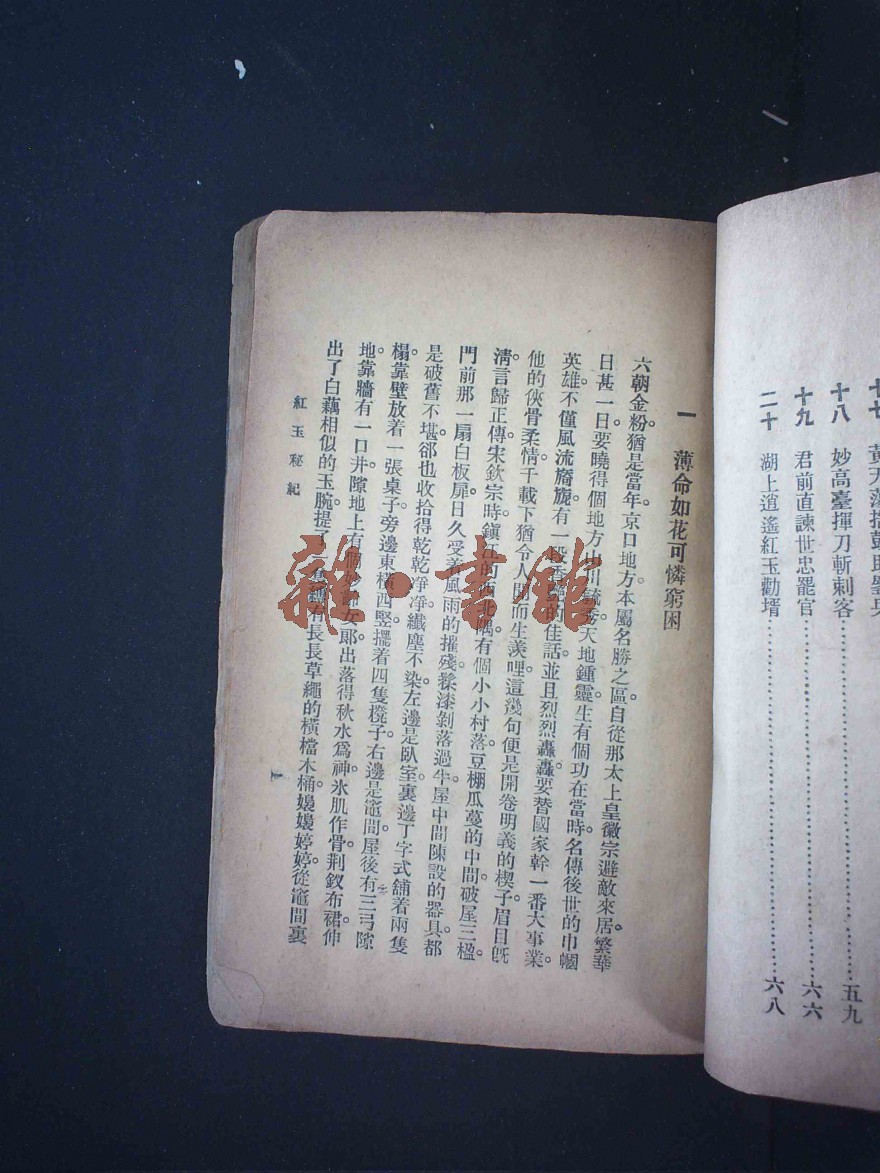 十八　妙高臺揮刀斬刺客……五九
十九　君前直諫世忠罷官……六六
二十　湖上逍遙紅玉勸壻……六八
一　薄命如花可憐窮困
六朝金粉。猶是當年。京口地方。本屬名勝之區。自從那太上皇徽宗避敵來居。繁華
日甚一日。要曉得個地方山川 秀。天地鍾靈。生有個功在當時名傳後世的巾幗
英雄。不僅風流旖旎。有一段 的佳話。並且烈烈轟轟。要替國家幹一番大事業
他的俠骨柔情。千載下猶令人聞而生羨哩。這幾句便是開卷明義的楔子。眉目旣
淸。言歸正傳。宋欽宗時。鎭江的西北隅。有個小小村落。豆棚瓜蔓的中間。破屋三楹。
門前那一扇白板扉。日久受着風雨的摧殘。髹漆剝落過半。屋中間陳設的器具。都
是破舊不堪。郤也收拾得乾乾凈凈。纖塵不染。左邊是臥室。裏邊丁字式舖着兩隻
榻。靠壁放着一張桌子。旁邊東橫西竪。擺着四隻櫈子。右邊是竈間。屋後有三弓隙
地。靠牆有一口井。隙地上有個 女郞。出落得秋水爲神。氷肌作骨。荆釵布裙。伸
出了白藕相似的玉腕。提了一 有長長草繩的橫檔木桶。嬝嬝婷婷。從竈間裏
紅玉秘紀
一
雜·書館